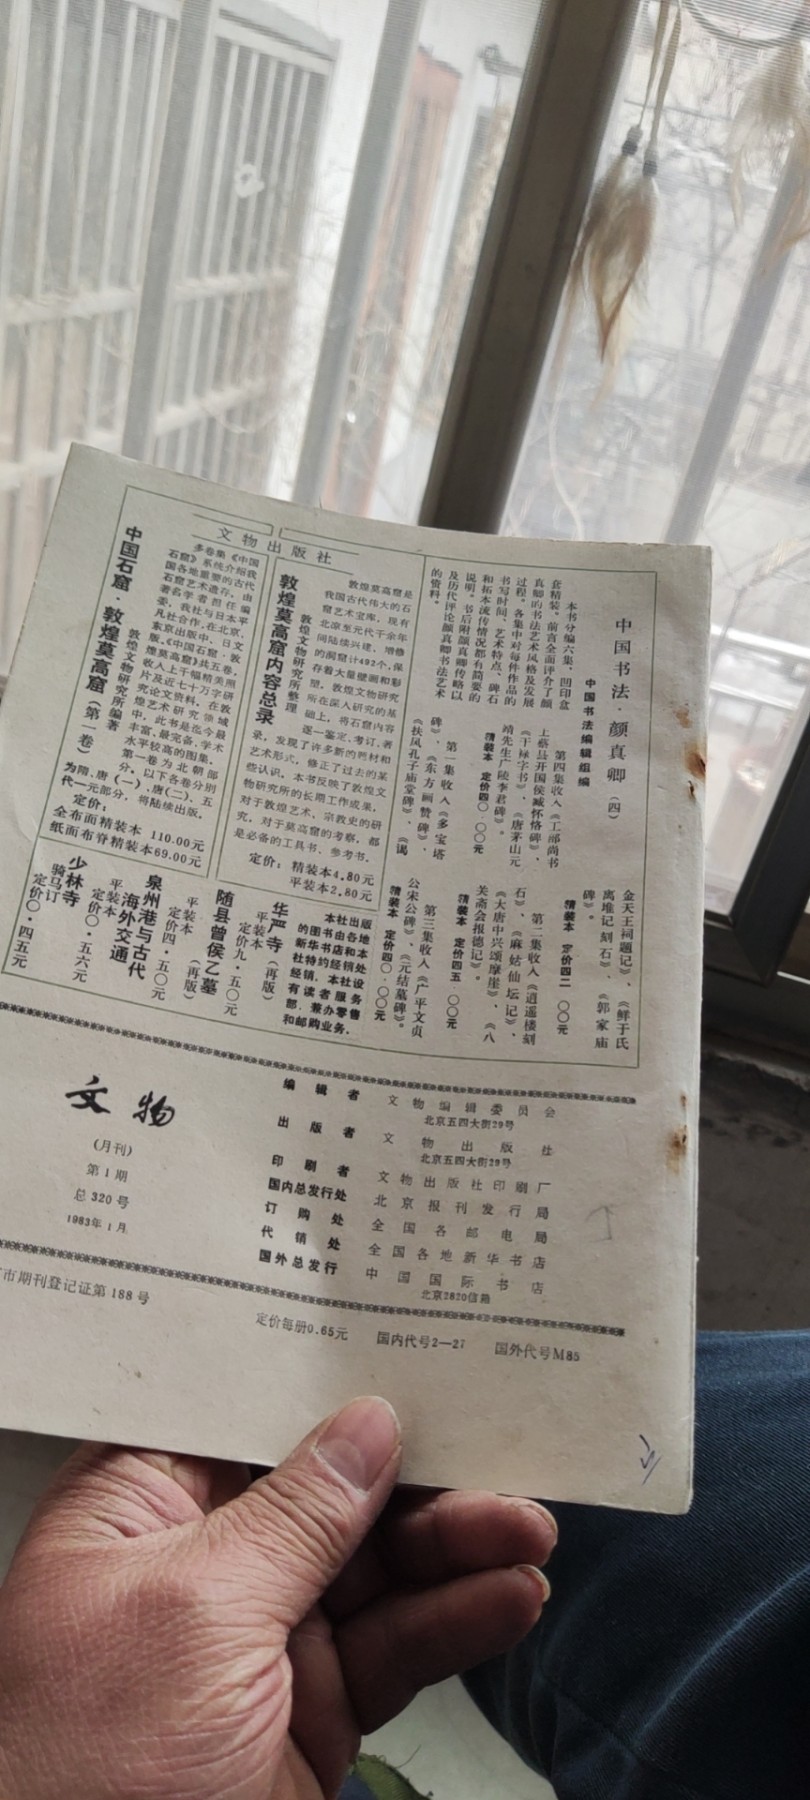 文物出版社
中国书法·颜真卿（四）
中国书法编辑组编
本书分编六集，凹印盒
套精装，前言全面评介了颜
真卿的书法艺术风格及发展
过程。各集中对每件作品的
书写时间、艺术特点、碑石
和拓本流传情况都有简要的
说明。书后附颜真卿传略以
及历代评论颜真卿书法艺术
的资料。
第一集收入《多宝塔
碑》、《东方画赞碑》、
《扶风孔子庙堂碑》、《谒
金天王祠题记》、《鲜于氏
离堆记刻石》、《郭家庙
碑》。
精装本 定价四二·〇〇元
第二集收入《逍遥楼刻
石》、《麻姑仙坛记》、
《大唐中兴颂摩崖》、《八
关斋会报德记》。
精装本 定价四五·〇〇元
第三集收入《广平文贞
公宋公碑》、《元结墓碑》。
精装本 定价四〇·〇〇元
第四集收入《工部尚书
上蔡县开国侯臧怀恪碑》、
《干禄字书》、《唐茅山元
靖先生广陵李君碑》。
精装本 定价四〇·〇〇元
敦煌莫高窟内容总录
敦煌文物研究所整理
敦煌莫高窟是
我国古代伟大的石
窟艺术宝库，现有
北凉至元代千余年
间陆续兴建、增修
的洞窟计492个，保
存着大量壁画和彩
塑。敦煌文物研究
所在深入研究的基
础上，将石窟内容
逐一鉴定、考订、著
录，发现了许多新的题材和
艺术形式，修正了过去的某
些认识。本书反映了敦煌文
物研究所的长期工作成果，
对于敦煌艺术、宗教史的研
究，对于莫高窟的考察，都
是必备的工具书、参考书。
定价：精装本4.80元
平装本2.80元
中国石窟·敦煌莫高窟（第一卷）
敦煌文物研究所编著
多卷集《中国
石窟》系统介绍我
国各地重要的古代
石窟艺术遗存，由
著名学者担任编
委，我社与日本平
凡社合作，在北京、
东京出版中、日文
版。《中国石窟·敦
煌莫高窟》共五卷，
收入上千幅精美照
片及近七十万字研
究论文资料，在敦
煌艺术研究领域
中，此书是迄今最
丰富，最完备，学术
水平较高的图集。
第一卷为北朝部
分。以下各卷分别
为隋、唐（一）、唐（二）、五
代—元部分，将陆续出版。
定价：
全布面精装本 110.00元
纸面布脊精装本69.00元
华严寺（再版）
平装本
定价九·五〇元
随县曾侯乙墓（再版）
平装本
定价四·五〇元
泉州港与古代
海外交通
平装本
定价〇·五六元
少林寺
骑马订
定价〇·四五元
本社出版
的图书由各地
新华书店和本
社特约经销处
经销，本社设
有读者服务
部，兼办零售
和邮购业务。
文物
(月刊)
第1期
总320号
1983年1月
编辑者 文物编辑委员会
北京五四大街29号
出版者 文物出版社
北京五四大街29号
印刷者 文物出版社印刷厂
国内总发行处 北京报刊发行局
订购处 全国各邮电局
代销处 全国各地新华书店
国外总发行 中国国际书店
北京2820信箱
市期刊登记证第188号
定价每册0.65元 国内代号2—27 国外代号M85